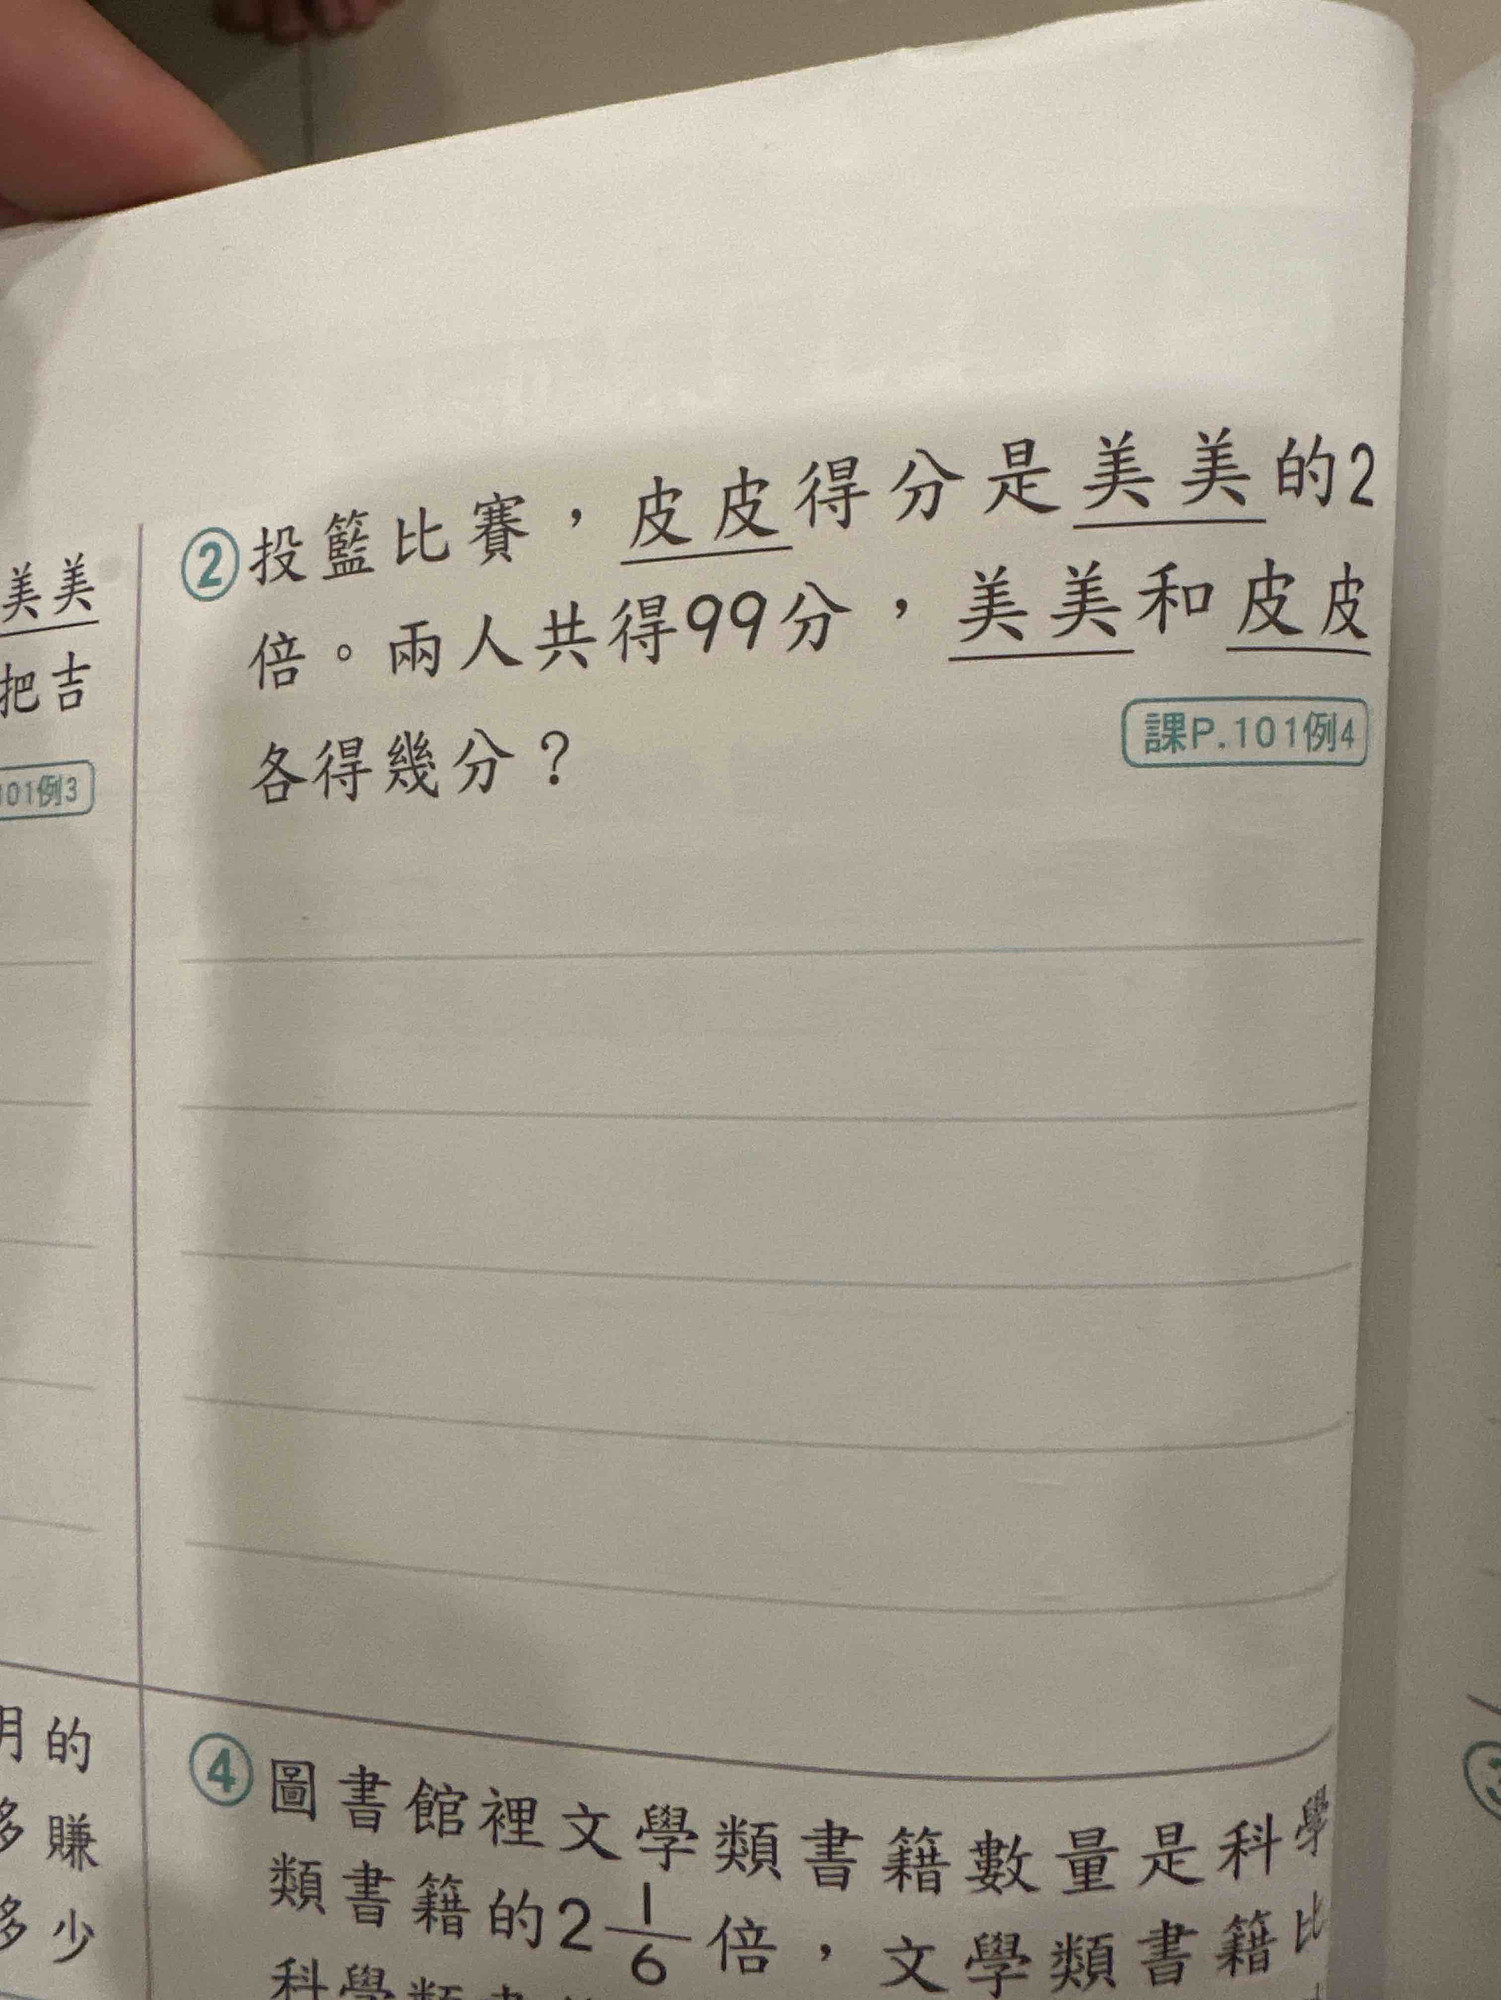 美美
把吉
101例3
②投籃比賽，皮皮得分是美美的2
倍。兩人共得99分，美美和皮皮
各得幾分？
課P.101例4
的
賺
少
④圖書館裡文學類書籍數量是科學
類書籍的2 1/6 倍，文學類書籍比
科學類